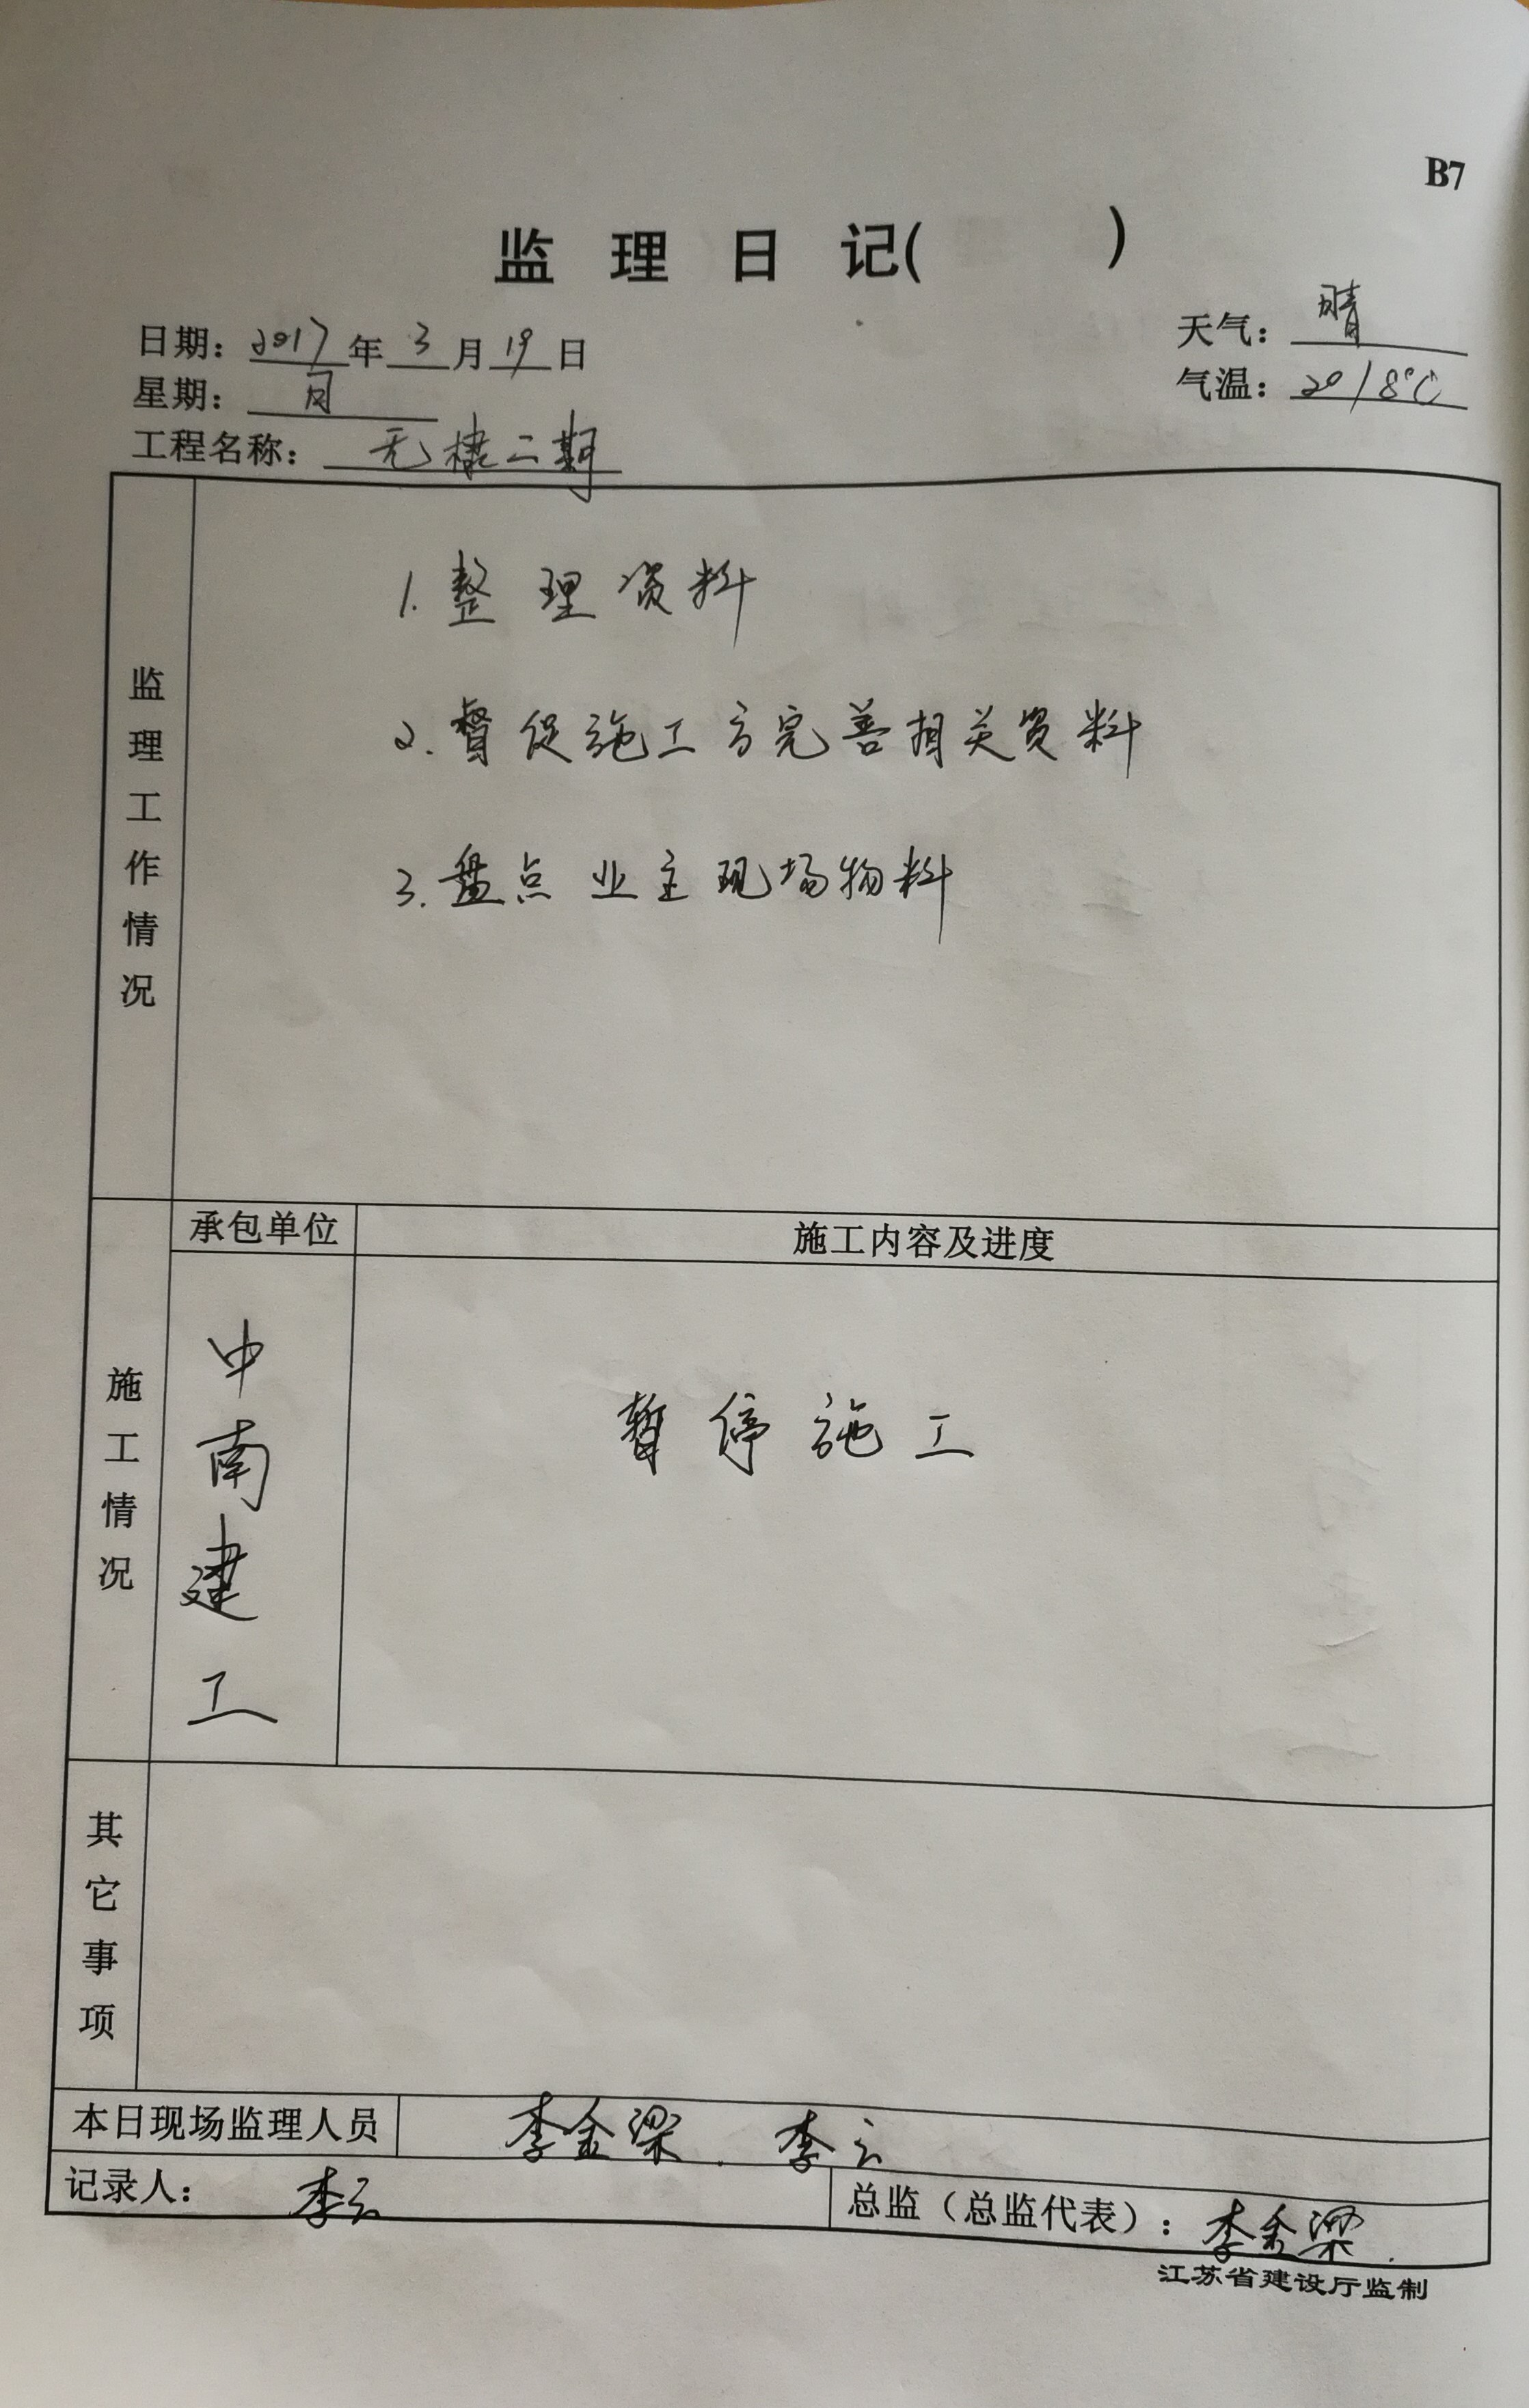 B7
监理日记( )
日期：2017年3月19日
天气：晴
星期：日
气温：20/8℃
工程名称：无棣二期
监理工作情况
1.整理资料
2.督促施工方完善相关资料
3.盘点业主现场物料
施工情况
承包单位
施工内容及进度
中南建工
暂停施工
其它事项
本日现场监理人员
李金梁、李云
记录人：李云
总监（总监代表）：李金梁
江苏省建设厅监制